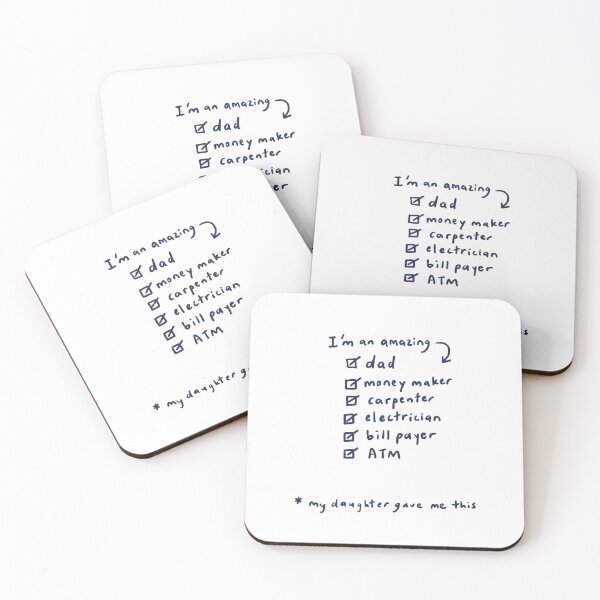 I'm an amazing
☑ dad
☑ money maker
☑ carpenter
I'm an amazing
☑ dad
☑ money maker
☑ carpenter
☑ electrician
☑ bill payer
☑ ATM
I'm an amazing
☑ dad
☑ money maker
☑ carpenter
☑ electrician
☑ bill payer
☑ ATM
* my daughter
I'm an amazing
☑ dad
☑ money maker
☑ carpenter
☑ electrician
☑ bill payer
☑ ATM
* my daughter gave me this